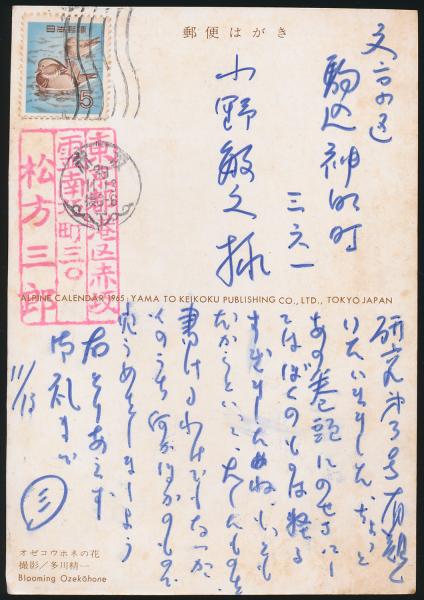 郵便はがき
日本郵便
5
文京区
駒込神明町
三六一
小野敏之様
東京都港区赤坂
雲南坂町三〇
松方三郎
ALPINE CALENDAR 1965: YAMA TO KEIKOKU PUBLISHING CO., LTD., TOKYO JAPAN
研究第3号有難く
いたゞきました ちょっと
あの巻頭にのせるに
てはぼくのものは軽
すぎましたね、もっとも
だからといって、大したものを
書けるわけでもないが、
そのうち何かほかのもので
うめをしましょう
右とりあえず
御礼まで
11/13
三
オゼコウホネの花
撮影/多川精一
Blooming Ozekōhone